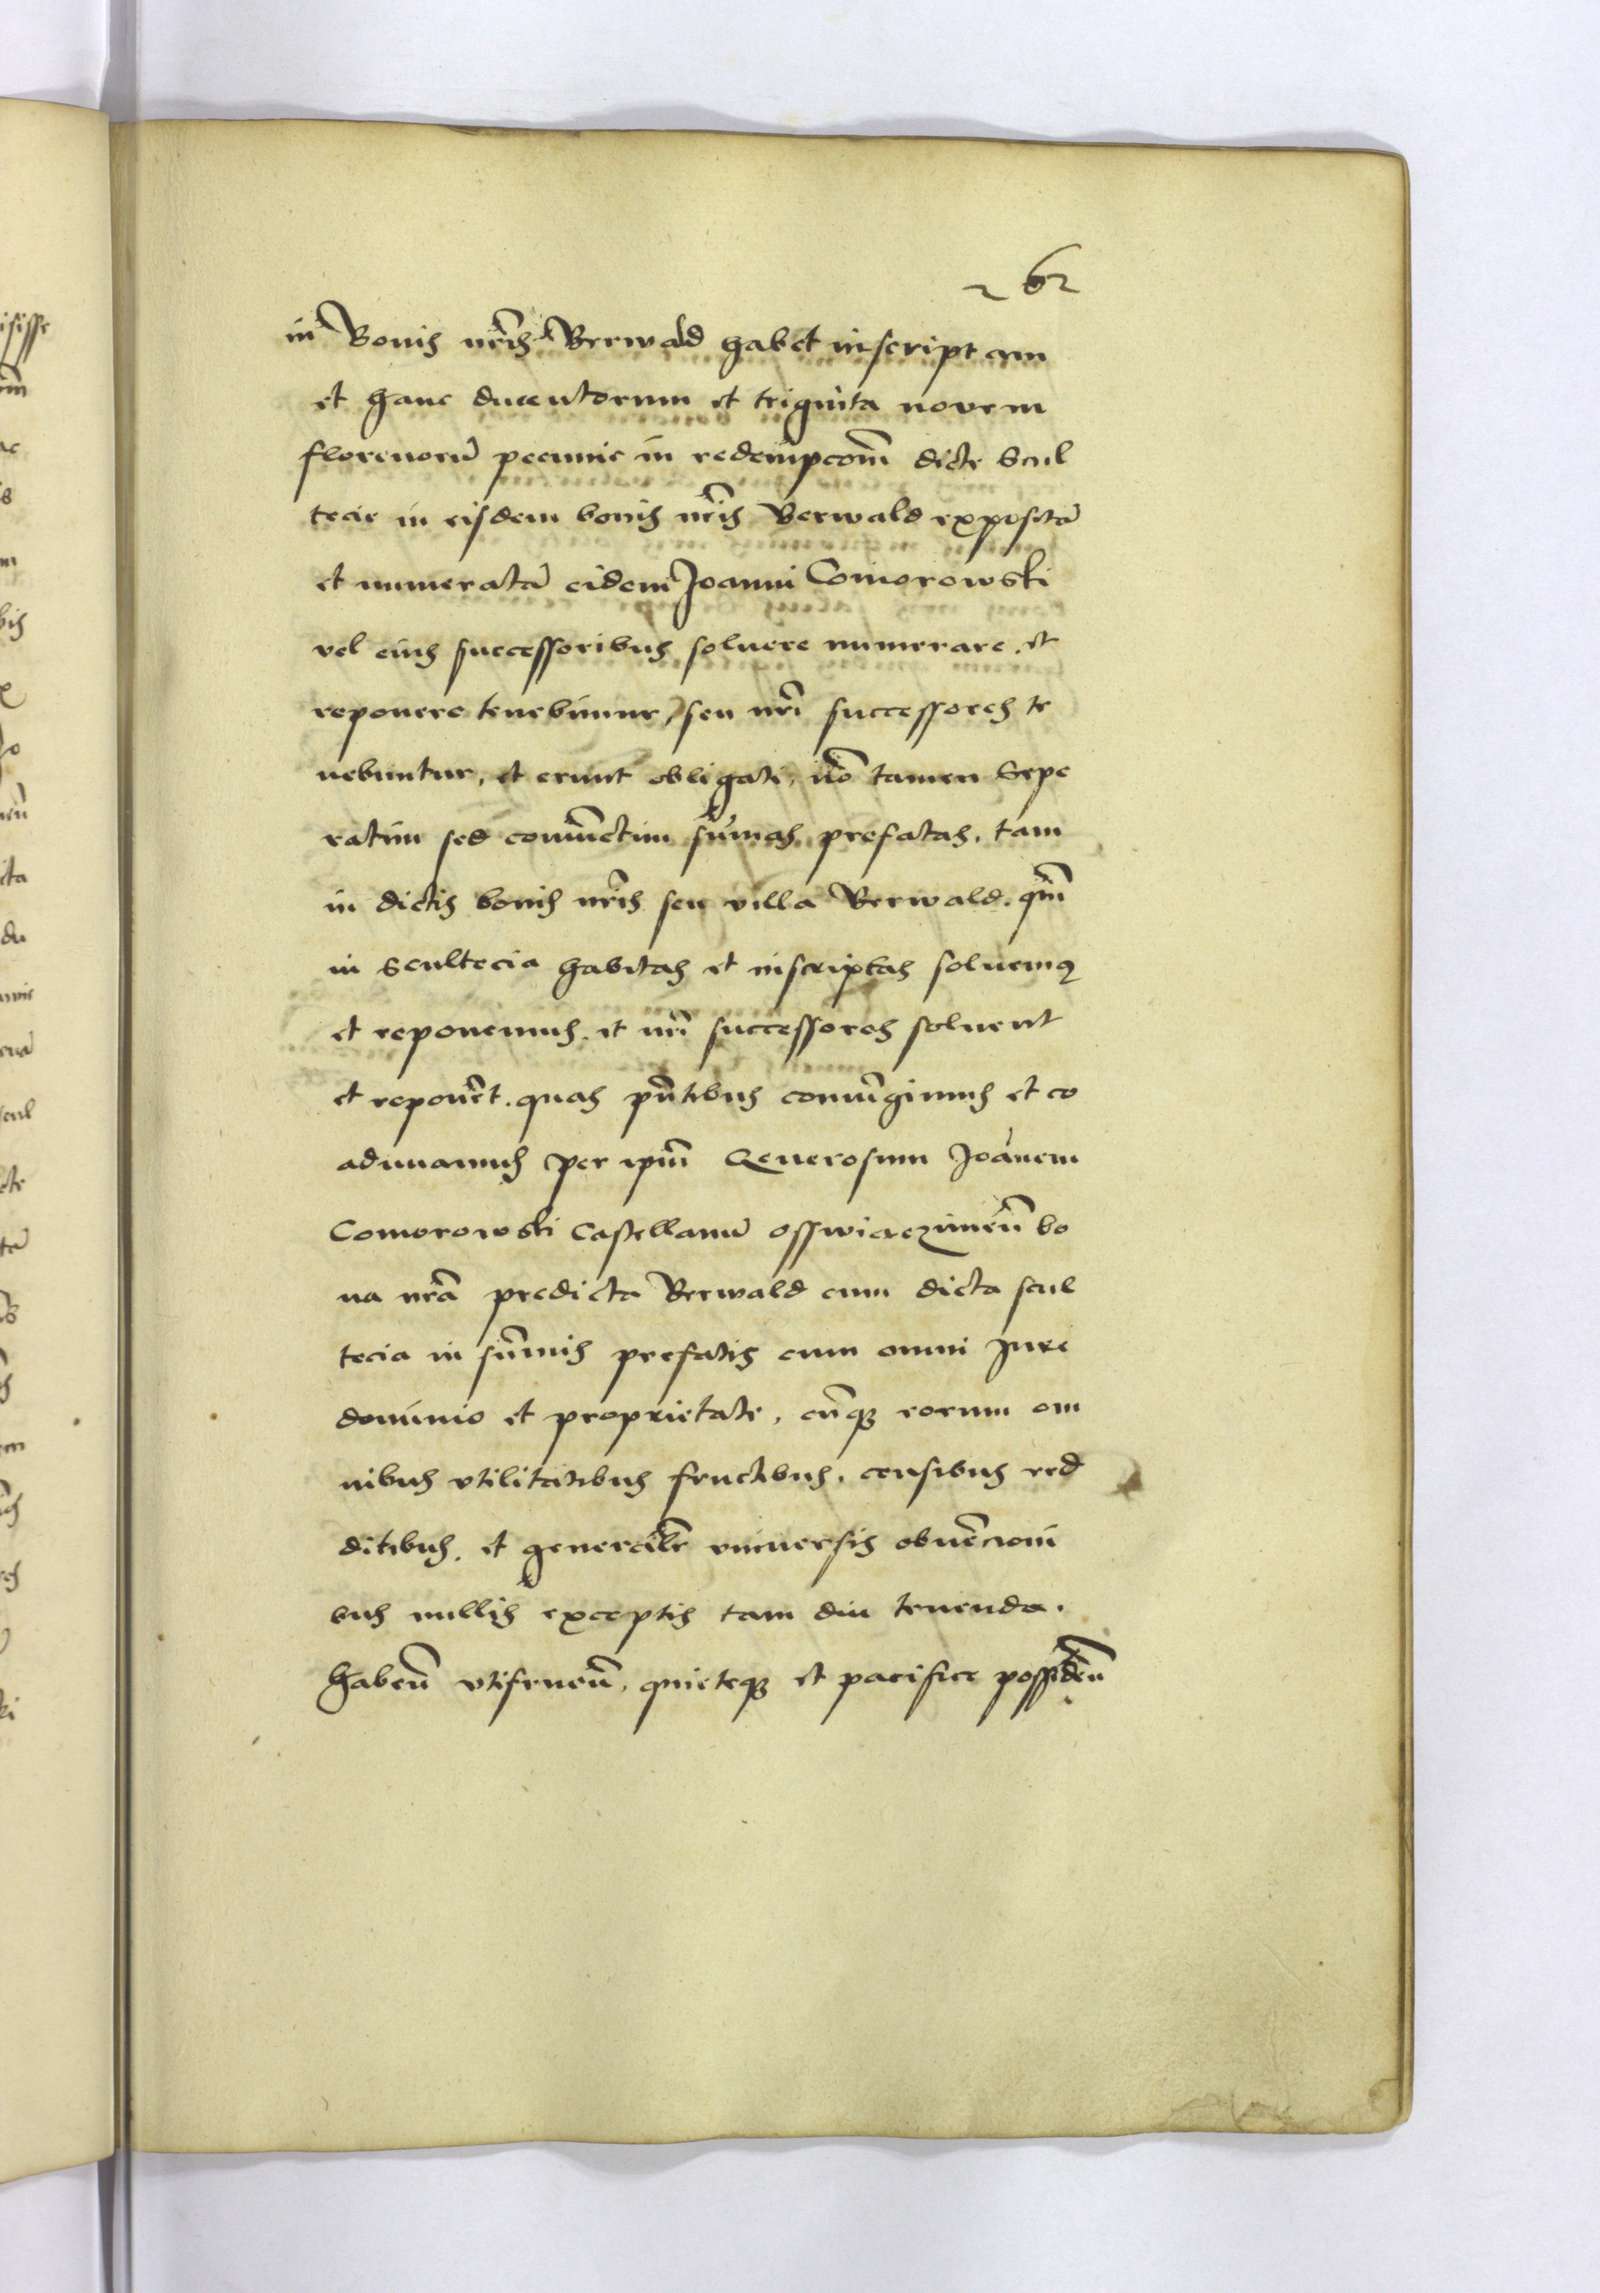 262
in Bonis nr̃is Berwald habet inscriptam
et hanc ducentorum et triginta novem
florenorũ pecunie in redempcõm dicte Scul
tecie in eisdem bonis nr̃is Berwald expositã
et numeratã eidem Joanni Comorowski
vel eius successoribus soluere numerare. et
reponere tenebimur, seu nr̃i successores te
nebuntur, et erunt obligati, nõ tamen Sepe
ratim sed coniũctim sũmas prefatas. tam
in dictis bonis nr̃is seu villa Berwald. qm̃
in Scultecia habitas et inscriptas soluemꝰ
et reponemus. et nr̃i successores soluent
et reponẽt. quas pñtibus coniũgimus et co
adunamus per ipm̃ Generosum Joãnem
Comorowski Castellanũ osswiaczimeñ bo
na nr̃a predicta Berwald cum dicta scul
tecia in sũmis prefatis cum omni Jure
dominio et proprietate, cũqꝫ eorum om
nibus vtilitatibus fructibus. censibus red
ditibus. et generalr̃ vniuersis obuẽcioni
bus nullis exceptis tam diu tenenda.
habeñ vtifrueñ, quieteqꝫ et pacifice possideñ